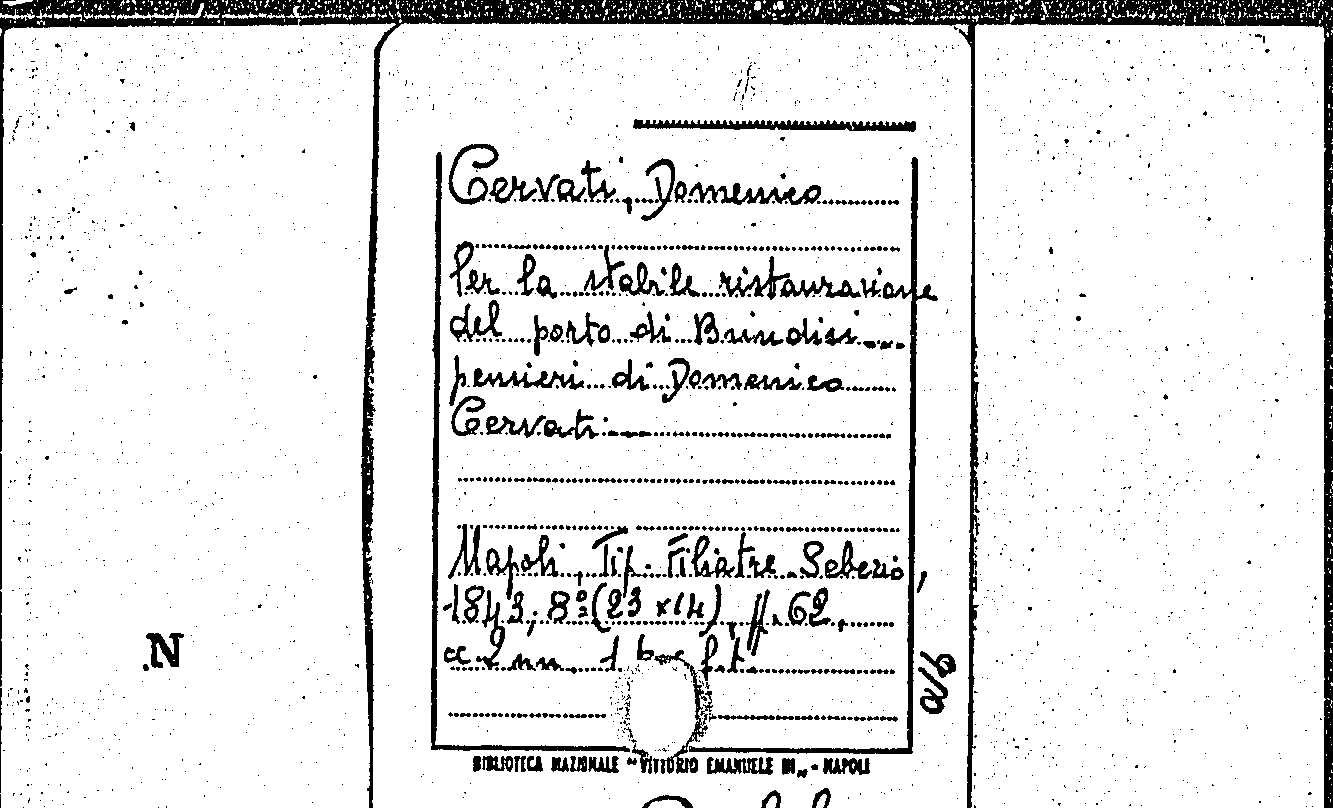 Cervati, Domenico
Per la stabile ristaurazione
del porto di Brindisi...
pensieri di Domenico
Cervati...
Napoli, Tip. Filiatre Sebezio,
1843; 8º (23 x 14), pp. 62,
cc. 2 nn. 1 f.t.
a/9
.N
BIBLIOTECA NAZIONALE "VITTORIO EMANUELE III" - NAPOLI